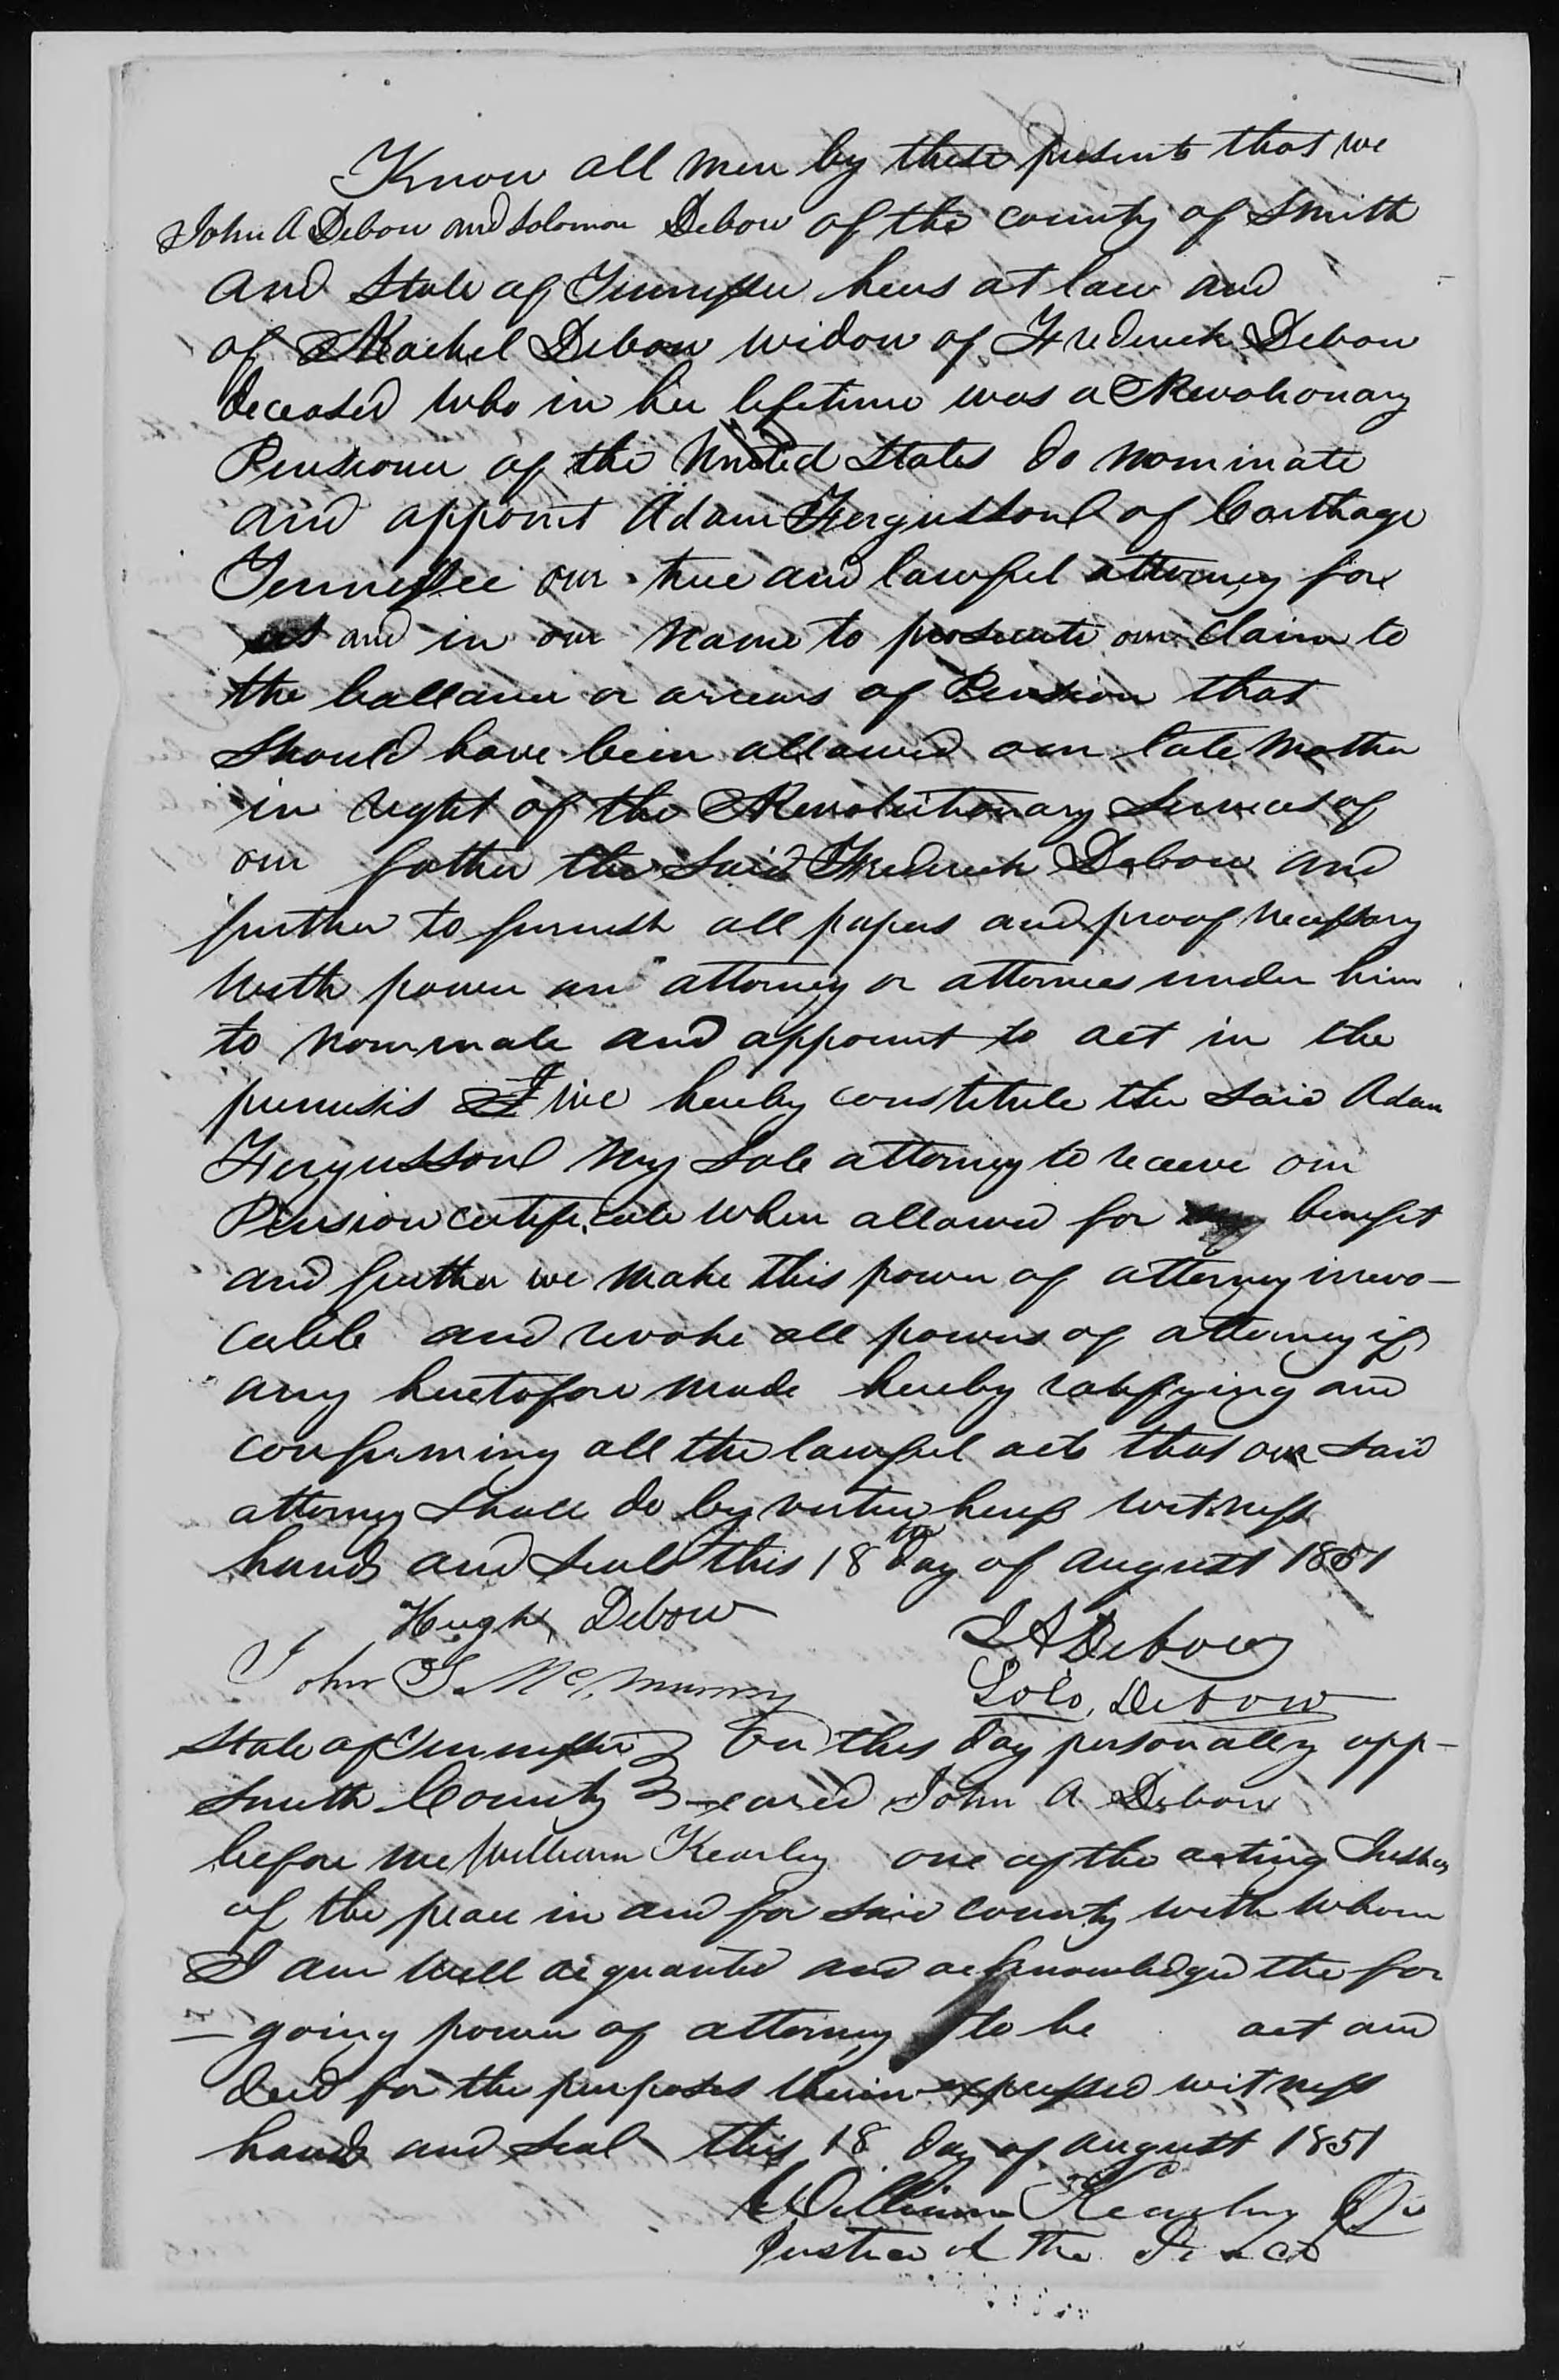 Know all men by these presents that we
John A Debow and Solomon Debow of the county of Smith
and State of Tennessee heirs at law and
of Rachel Debow widow of Frederick Debow
deceased who in her lifetime was a Revolionary
Pensioner of the United States do nominate
and appoint Adam Fergusson of Carthage
Tennessee our true and lawful attorney for
us and in our name to prosecute our claim to
the ballance or arrears of Pension that
should have been allowed our late mother
in right of the Revolutionary Services of
our father the said Frederick Debow and
further to furnish all papers and proof necessary
with power an attorney or attornies under him
to nominate and appoint to act in the
premisis & we hereby constitute the said Adam
Fergusson my sole attorney to receive our
Pension certificate when allowed for benefit
and further we make this power of attorney irrevo-
cable and revoke all powers of attorney if
any heretofore made hereby ratifying and
confirming all the lawful acts that our said
attorney shall do by virtue herof witness
hands and seals this 18th day of August 1851
Hugh Debow
J A Debow
John S. McMurry
Solo. Debow
State of Tennessee } On this day personally app-
Smith County } -eared John A Debow
before me William Kearley one of the acting Justices
of the peace in and for said county with whom
I am well acquanted and acknowledged the for
- going power of attorney to be act and
deed for the purposes therin expressed witness
hand and seal this 18 day of August 1851
William Kearley
Justice of the Peace